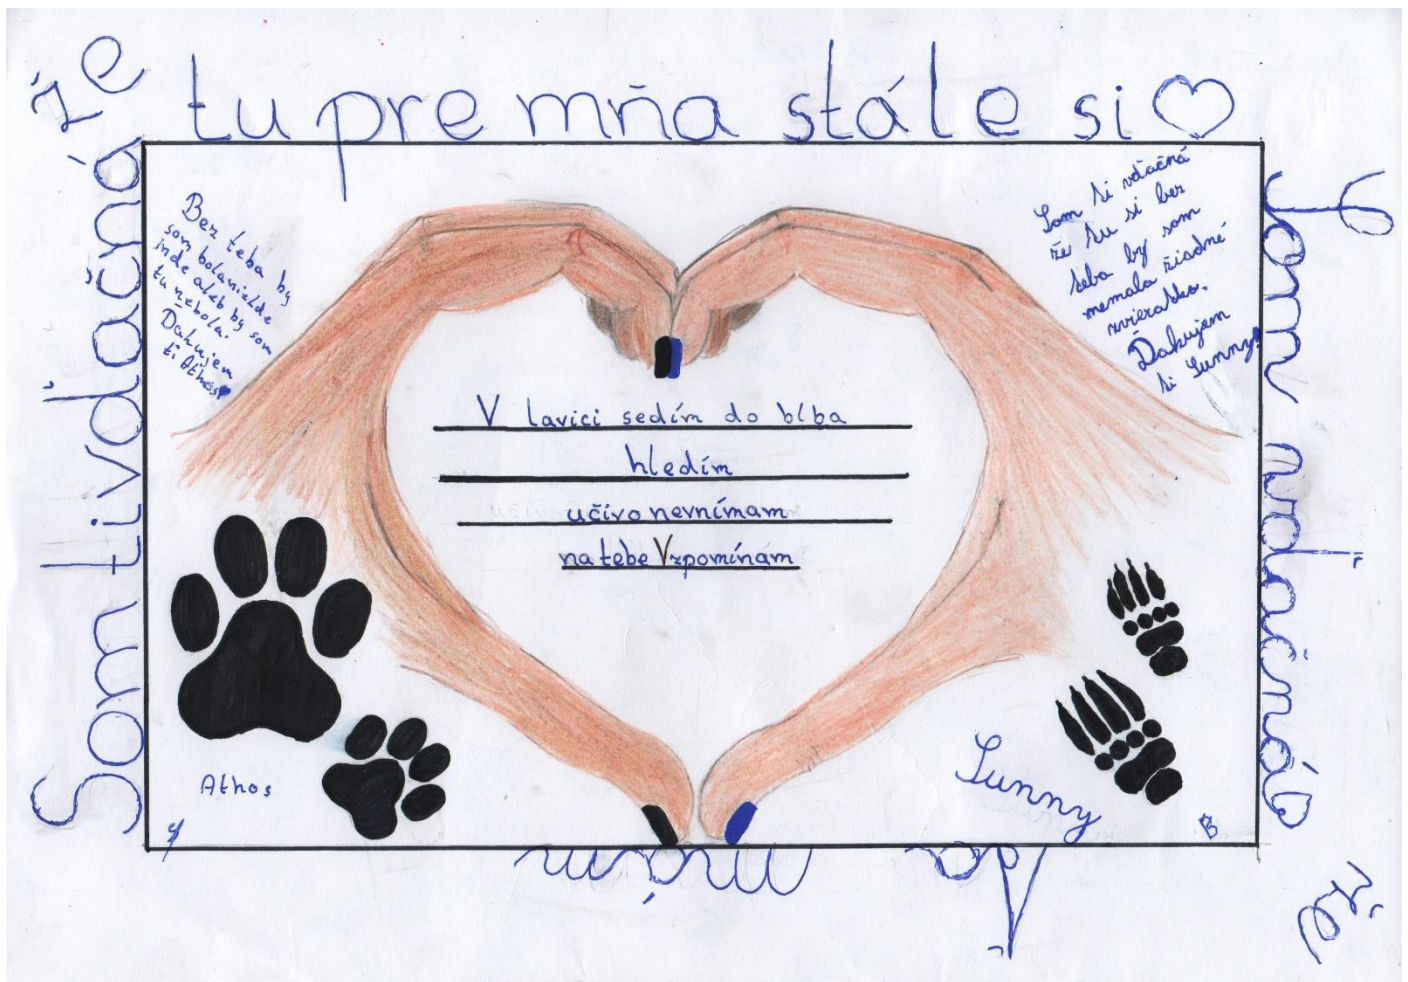 Som ti vďačná
že
tu pre mňa stále si
Som vďačná
že
ťa mám
Bez teba by
som bola niekde
inde aleb by som
tu nebola.
Ďakujem
ti Athos
Som ti vďačná
že tu si bez
teba by som
nemala žiadné
zvieratko.
Ďakujem
ti Sunny
V lavici sedím do blba
hledím
učivo nevnímam
na tebe Vzpomínam
Athos
Sunny
B